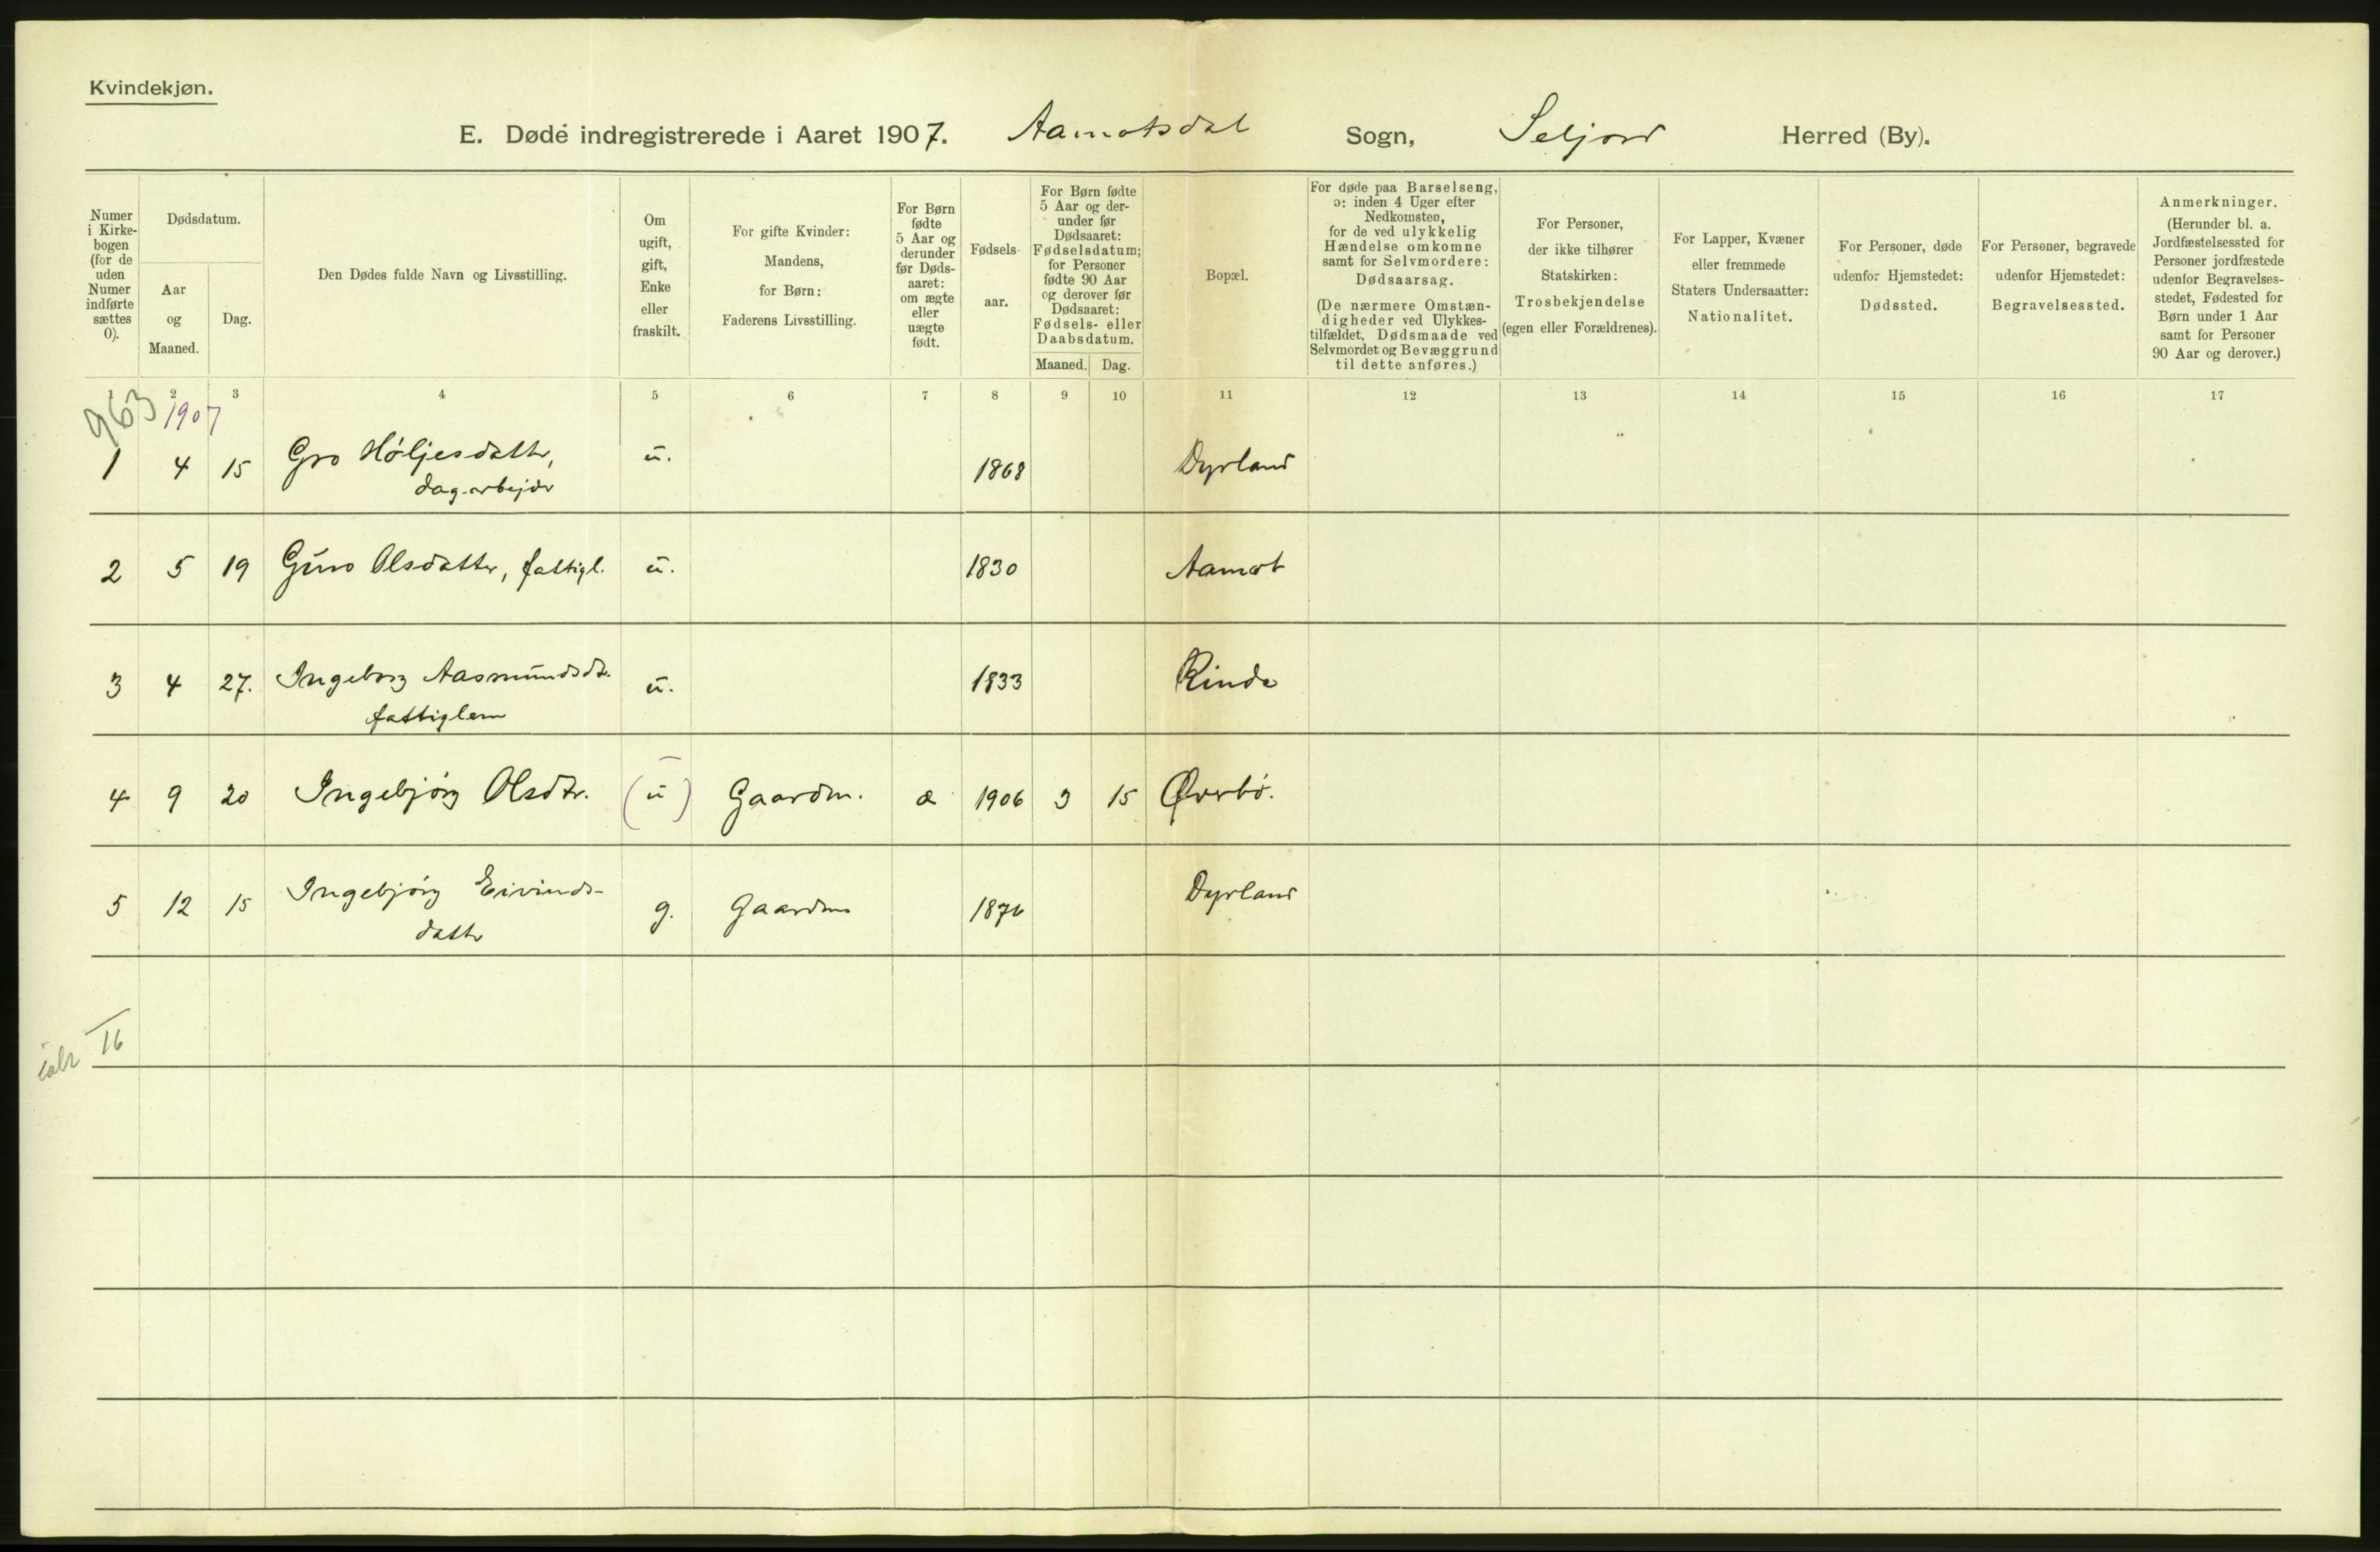 Kvindekjøn.
E. Døde indregistrerede i Aaret 1907. Aamotsdal Sogn, Seljord Herred (By).
Numer i Kirke-bogen (for de uden Numer indførte sættes 0).
Dødsdatum.
Aar og Maaned.
Dag.
Den Dødes fulde Navn og Livsstilling.
Om ugift, gift, Enke eller fraskilt.
For gifte Kvinder: Mandens, for Børn: Faderens Livsstilling.
For Børn fødte 5 Aar og derunder før Døds-aaret: om ægte eller uægte født.
Fødsels-aar.
For Børn fødte 5 Aar og der-under før Dødsaaret: Fødselsdatum; for Personer fødte 90 Aar og derover før Dødsaaret: Fødsels- eller Daabsdatum.
Maaned. Dag.
Bopæl.
For døde paa Barselseng, ɔ: inden 4 Uger efter Nedkomsten, for de ved ulykkelig Hændelse omkomne samt for Selvmordere: Dødsaarsag. (De nærmere Omstæn-digheder ved Ulykkes-tilfældet, Dødsmaade ved Selvmordet og Bevæggrund til dette anføres.)
For Personer, der ikke tilhører Statskirken: Trosbekjendelse (egen eller Forældrenes).
For Lapper, Kvæner eller fremmede Staters Undersaatter: Nationalitet.
For Personer, døde udenfor Hjemstedet: Dødssted.
For Personer, begravede udenfor Hjemstedet: Begravelsessted.
Anmerkninger. (Herunder bl. a. Jordfæstelsessted for Personer jordfæstede udenfor Begravelses-stedet, Fødested for Børn under 1 Aar samt for Personer 90 Aar og derover.)
1 2 3 4 5 6 7 8 9 10 11 12 13 14 15 16 17
963 1907
1 4 15 Gro Høljesdatter, u. 1868 Dyrland
dagarbejder
2 5 19 Guro Olsdatter, fattigl. u. 1830 Aamot
3 4 27. Ingeborg Aasmundsdtr. u. 1833 Rinde
fattiglem
4 9 20 Ingebjörg Olsdtr. (u) Gaardm. æ 1906 3 15 Øverbö.
5 12 15 Ingebjörg Eivinds- g. Gaardm 1876 Dyrland
datter
16